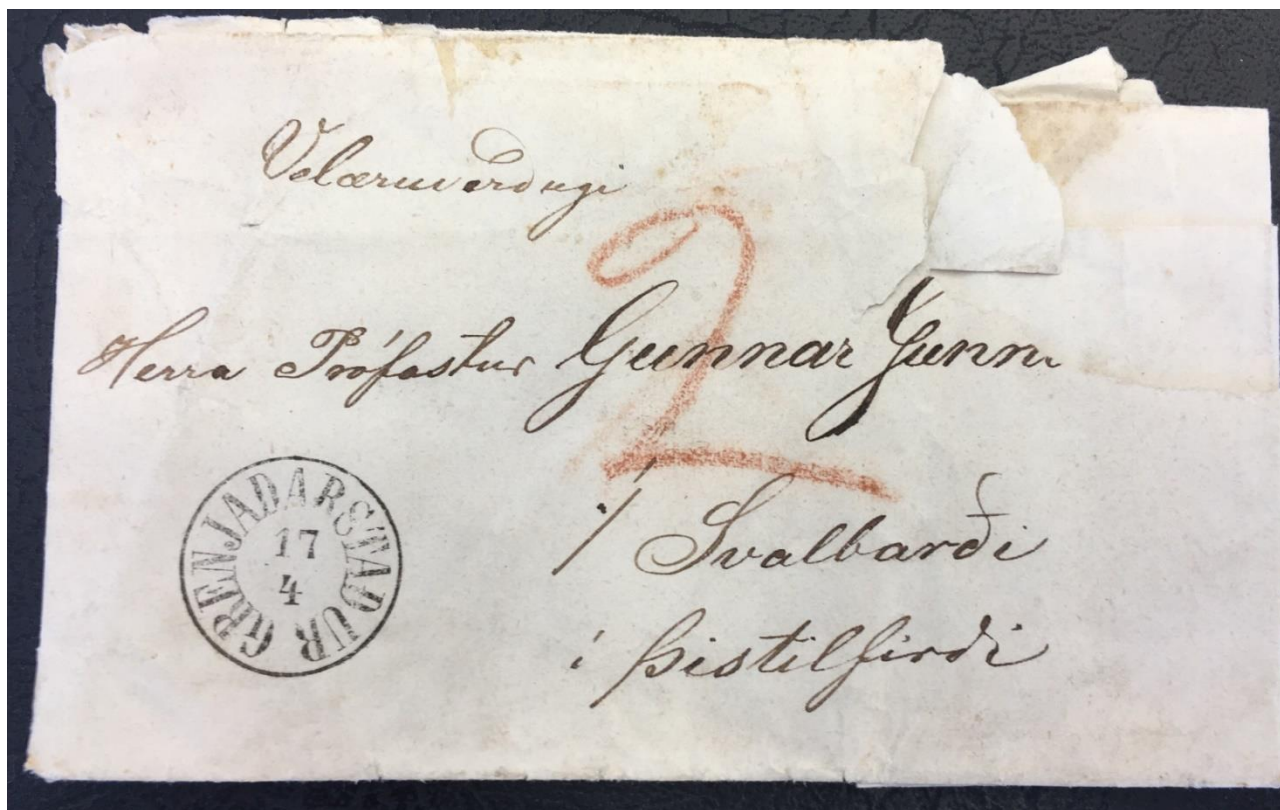 Velæruverdugi
2
Herra Prófastur Gunnar Gunn
Svalbarði
í Þistilfirði
GRENJADARSTADUR
17
4